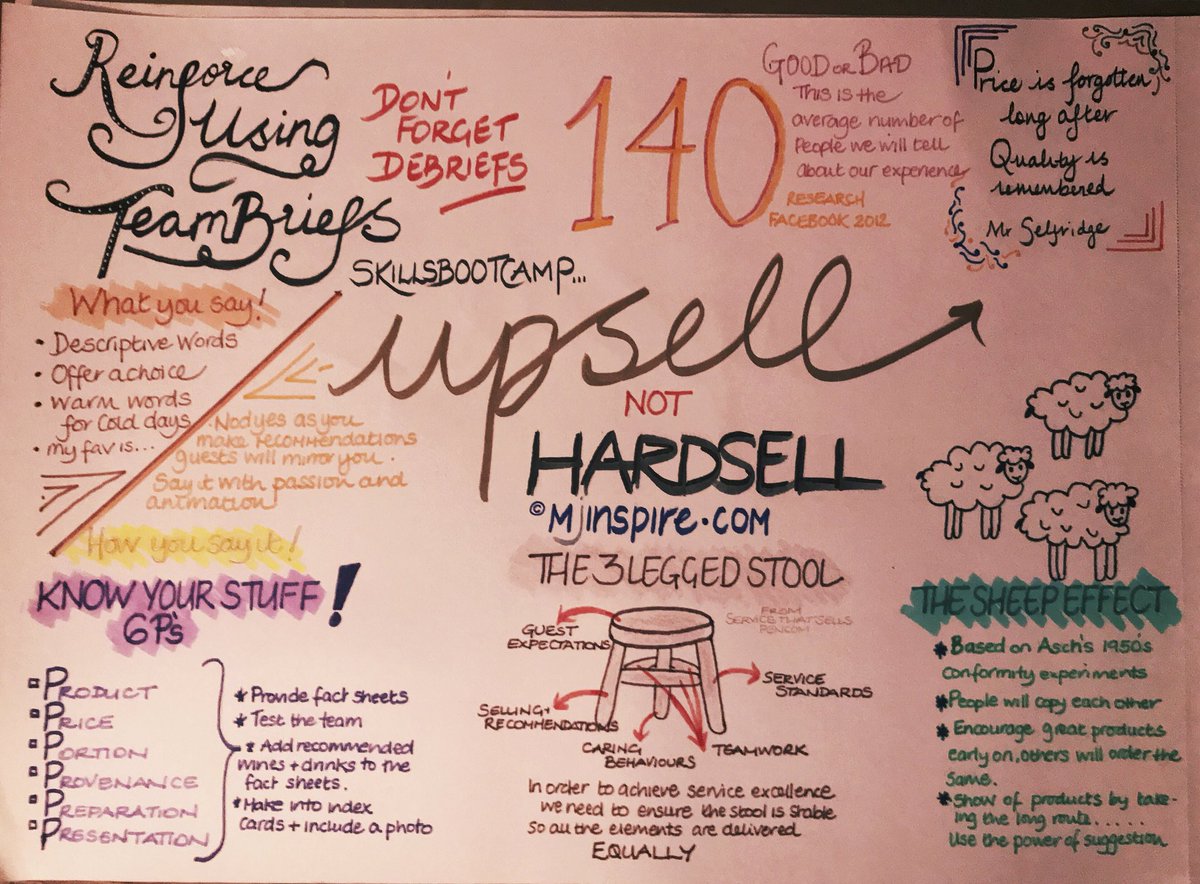 Reinforce
Using
Team Briefs
DON'T
FORGET
DEBRIEFS
140
GOOD OR BAD
This is the
average number of
People we will tell
about our experience
RESEARCH
FACEBOOK 2012
Price is forgotten,
long after
Quality is
remembered
Mr Selfridge
SKILLSBOOTCAMP...
upsell
NOT
HARDSELL
© Mjinspire.com
What you say!
• Descriptive words
• Offer a choice
• warm words
for cold days
• my fav is...
Nod yes as you
make recommendations
guests will mirror you.
Say it with passion and
animation
How you say it!
KNOW YOUR STUFF!
6P's
PRODUCT
PRICE
PORTION
PROVENANCE
PREPARATION
PRESENTATION
* Provide fact sheets
* Test the team
* Add recommended
wines + drinks to the
fact sheets.
* Make into index
cards + include a photo
THE 3 LEGGED STOOL
FROM
SERVICE THAT SELLS
GUEST
EXPECTATIONS
SERVICE
STANDARDS
SELLING+
RECOMMENDATIONS
CARING
BEHAVIOURS
TEAMWORK
In order to achieve service excellence
we need to ensure the stool is stable
so all the elements are delivered
EQUALLY
THE SHEEP EFFECT
* Based on Asch's 1950's
conformity experiments
* People will copy each other
* Encourage great products
early on, others will order the
same.
* Show of products by tak-
ing the long route......
Use the power of suggestion